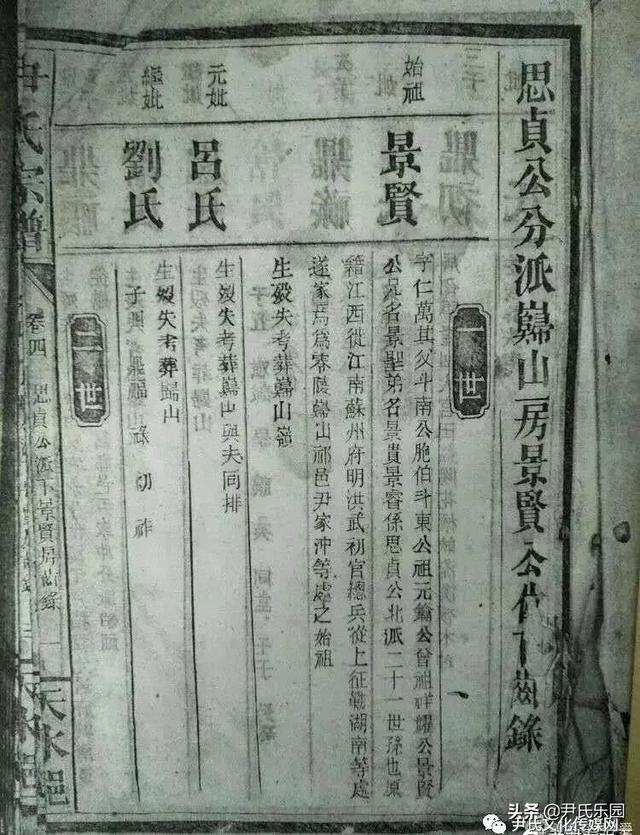 思貞公分派巋山房景賢公位下齒錄
一世
始祖
景賢
字仁萬其父斗南公胞伯斗東公祖元鑰公曾祖祥耀公景賢
公兄名景聖弟名景貴景睿係思貞公北派二十一世孫也原
籍江西從江南蘇州府明洪武初官總兵從上征戰湖南等處
遂家焉為零陵巋山祁邑尹家沖等處之始祖
生歿失考葬巋山嶺
元妣
呂氏
生歿失考葬巋山與夫同排
繼妣
劉氏
生歿失考葬歸山
子興 鼎福 祿 初 祚
二世
尹氏宗譜
卷四
思貞公派下景賢房齒錄
一
天水邑
头条 @尹氏乐园
尹氏文化传媒网